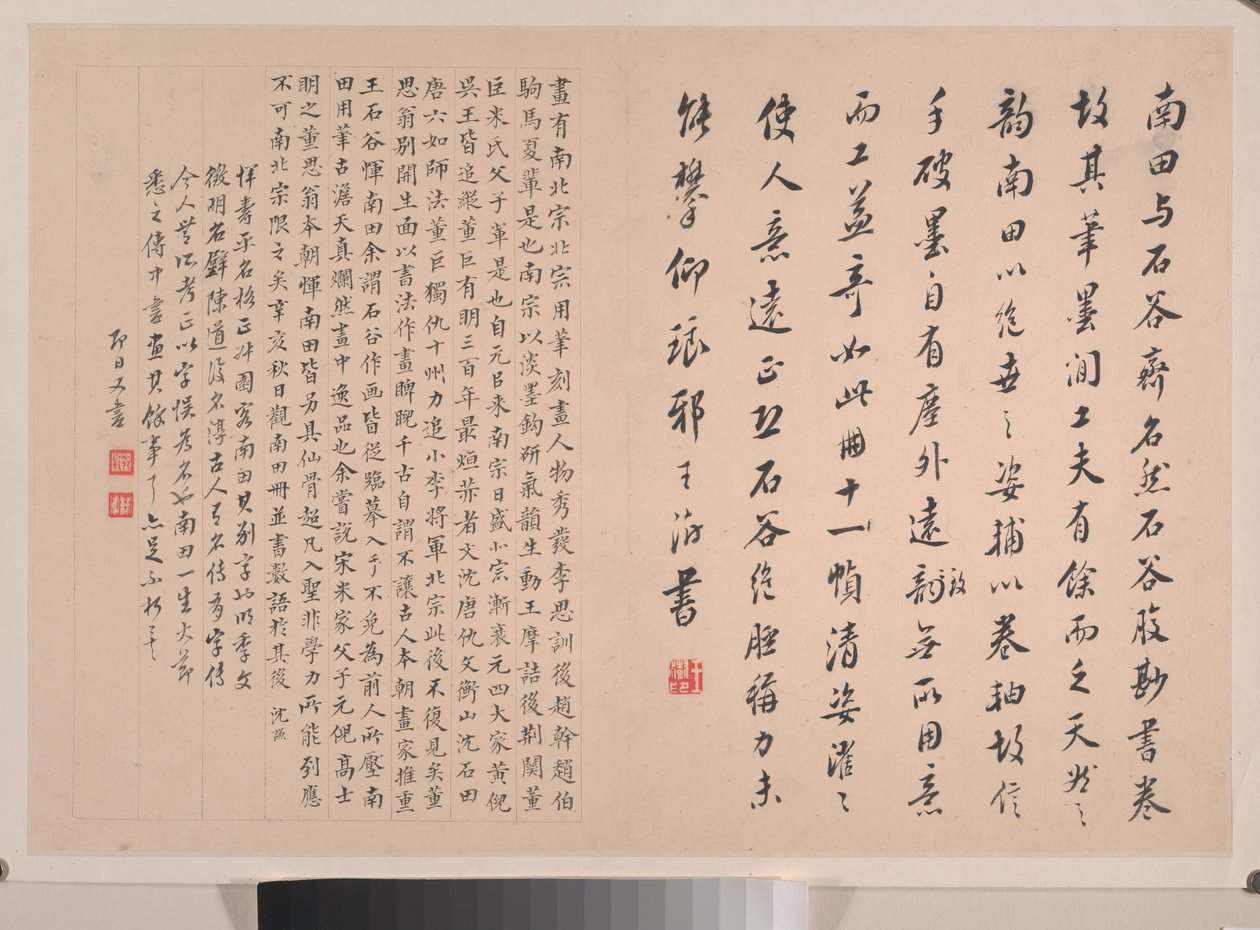 南田与石谷齊名然石谷腹尠書卷
故其筆墨間工夫有餘而乏天然之
韵南田以絶世之姿捕以卷軸故信
手破墨自有塵外遠韵致無所用意
而工益奇如此冊十一幀清姿濯之
使人意遠正恐石谷絶脛稱力未
能攀仰琅邪王 書
畫有南北宗北宗用筆刻畫人物秀發李思訓後趙幹趙伯
駒馬夏輩是也南宗以淡墨鈎研氣韻生動王摩詰後荆關董
巨米氏父子輩是也自元㠯来南宗日盛北宗漸衰元四大家黃倪
吳王皆追縱董巨有明三百年最烜赫者文沈唐仇文衡山沈石田
唐六如師法董巨獨仇十州力追小李將軍北宗此後不復見矣董
思翁別開生面以書法作畫睥睨千古自謂不讓古人本朝畫家推重
王石谷惲南田余謂石谷作画皆從臨摹入手不免為前人所壓南
田用筆古澹天真爛然畫中逸品也余嘗説宋米家父子元倪高士
明之董思翁本朝惲南田皆另具仙骨超凡入聖非學力所能到應
不可南北宗限之矣辛亥秋日觀南田冊並書數語於其後 沈
惲壽平名格正叔園客南田其别字也明季文
徵明名璧陳道復名淳古人有名傳有字傳
今人無从考正以字悮為名也南田一生大節
悉之傳中書畫其餘事
即日又書